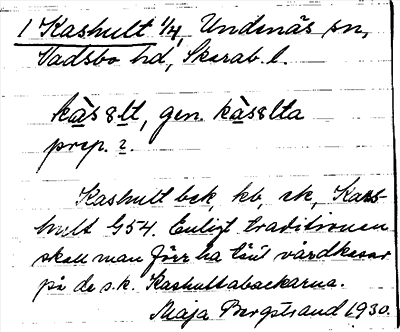 1 Kashult 1/4, Undenäs sn,
Vadsbo hd, Skarab. l.
kàsɞlt, gen. kàsɞlta
prep. 2.
Kashult bck, kb, ck, Kars-
hult G54. Enligt traditionen
skall man förr ha tänt vårdkasar
på de s.k. Kashultabackarna.
Maja Bergstrand 1930.